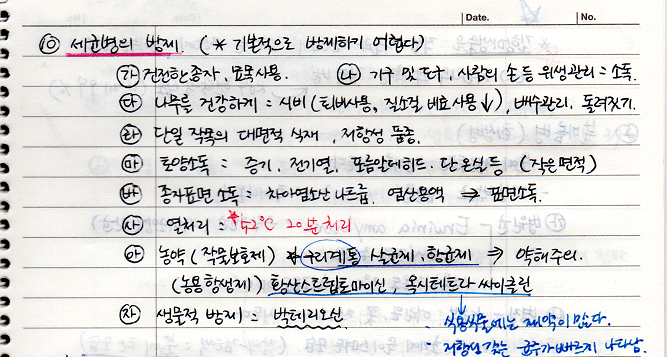 Date. No.
⑩ 세균병의 방제. (* 기본적으로 방제하기 어렵다)
㉮ 건전한 종자, 묘목사용. ㉯ 기구 및 도구, 사람의 손 등 위생관리 = 소독.
㉰ 나무를 건강하게 = 시비 (퇴비사용, 질소질 비료 사용↓), 배수관리, 돌려짓기.
㉱ 단일 작목의 대면적 식재, 저항성 품종.
㉲ 토양소독 = 증기, 전기열, 포름알데히드. 단 온실 등 (작은 면적)
㉳ 종자표면 소독 = 차아염소산나트륨, 염산용액 → 표면소독.
㉴ 열처리 = *52℃ 20분 처리
㉵ 농약 (작물보호제) 구리계통 살균제, 항균제 ⇒ 약해주의.
(농용항생제) 황산스트렙토마이신, 옥시테트라싸이클린
㉶ 생물적 방제 = 박테리오신
- 식용식물에는 제약이 많다.
- 저항성 균주가 빠르게 나타남.